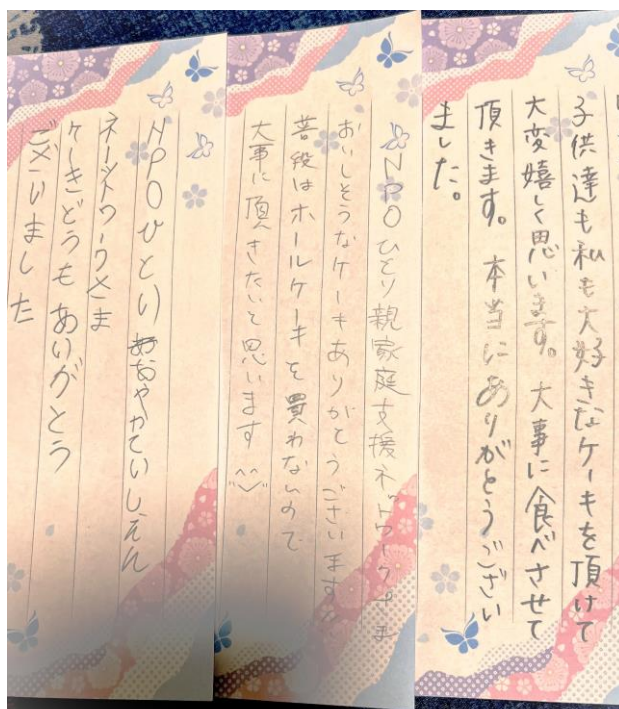 子供達も私も大好きなケーキを頂けて
大変嬉しく思います。大事に食べさせて
頂きます。本当にありがとうござい
ました。
NPOひとり親家庭支援ネットワークさま
おいしそうなケーキありがとうございます
普段はホールケーキを買わないので
大事に頂きたいと思います^^
NPOひとりおやかていしえん
ネットワークさま
ケーキどうもありがとう
ございました